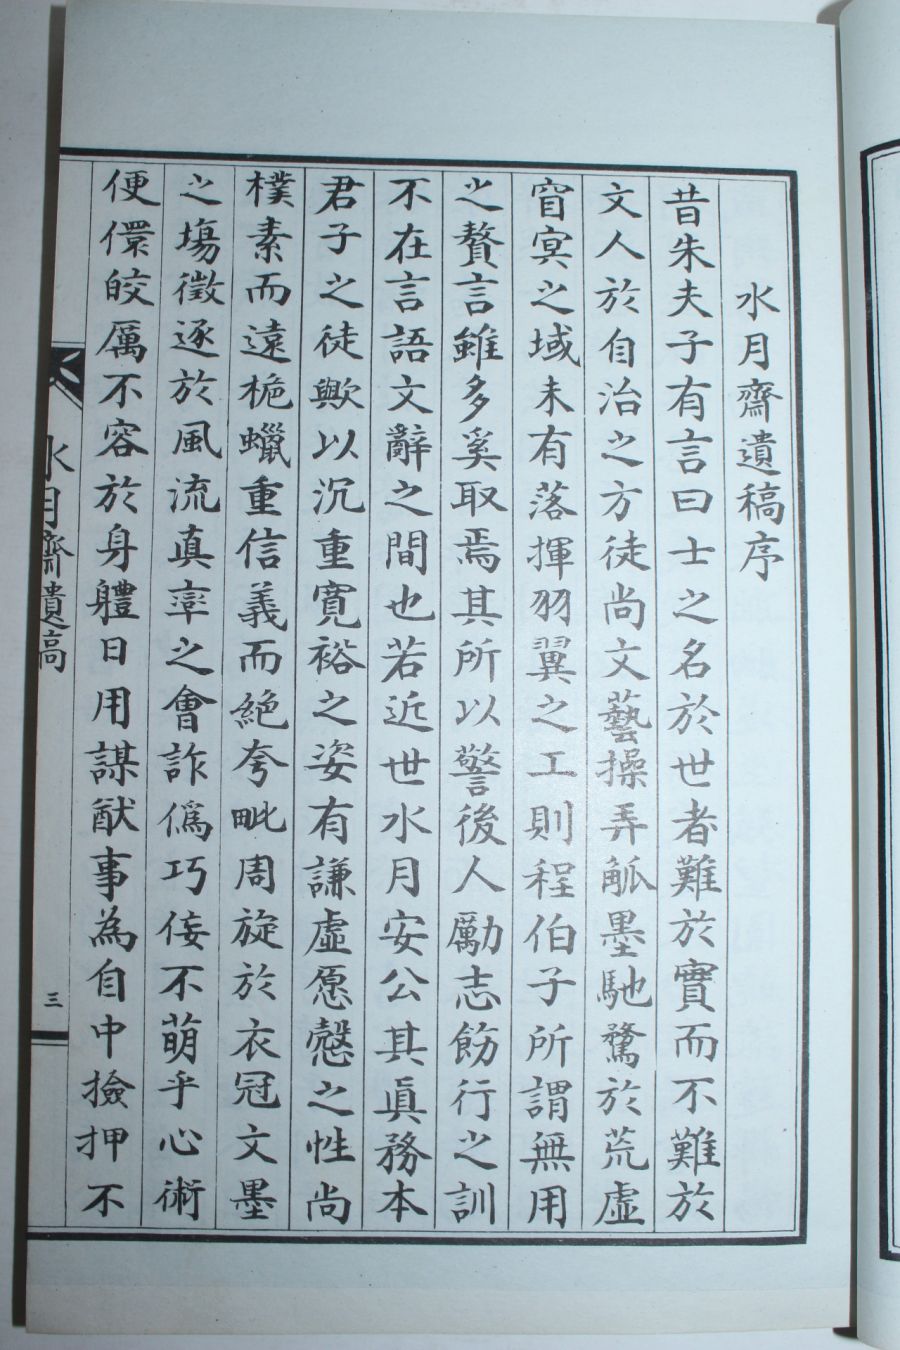 水月齋遺稿序
昔朱夫子有言曰士之名於世者難於實而不難於
文人於自治之方徒尚文藝操弄觚墨馳騖於荒虛
窅冥之域未有落揮羽翼之工則程伯子所謂無用
之贅言雖多奚取焉其所以警後人勵志飭行之訓
不在言語文辭之間也若近世水月安公其眞務本
君子之徒歟以沉重寬裕之姿有謙虛愿慤之性尚
樸素而遠桅蠟重信義而絶夸毗周旋於衣冠文墨
之塲徵逐於風流真率之會詐僞巧佞不萌乎心術
便儇皎厲不容於身軆日用謀猷事為自中撿押不
水月齋遺稿
三